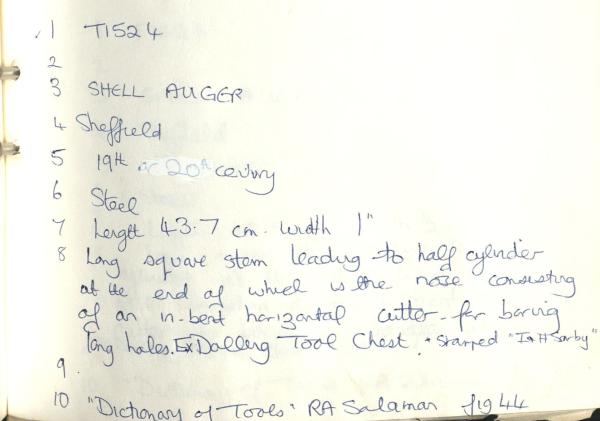 1 T1524
2
3 SHELL AUGER
4 Sheffield
5 19th or 20th century
6 Steel
7 Length 43.7 cm. Width 1"
8 Long square stem leading to half cylinder
at the end of which is the nose consisting
of an in-bent horizontal cutter - for boring
long holes. Ex Dalling Tool Chest. * Stamped "I & H Sorby"
9
10 "Dictionary of Tools" RA Salaman fig 44